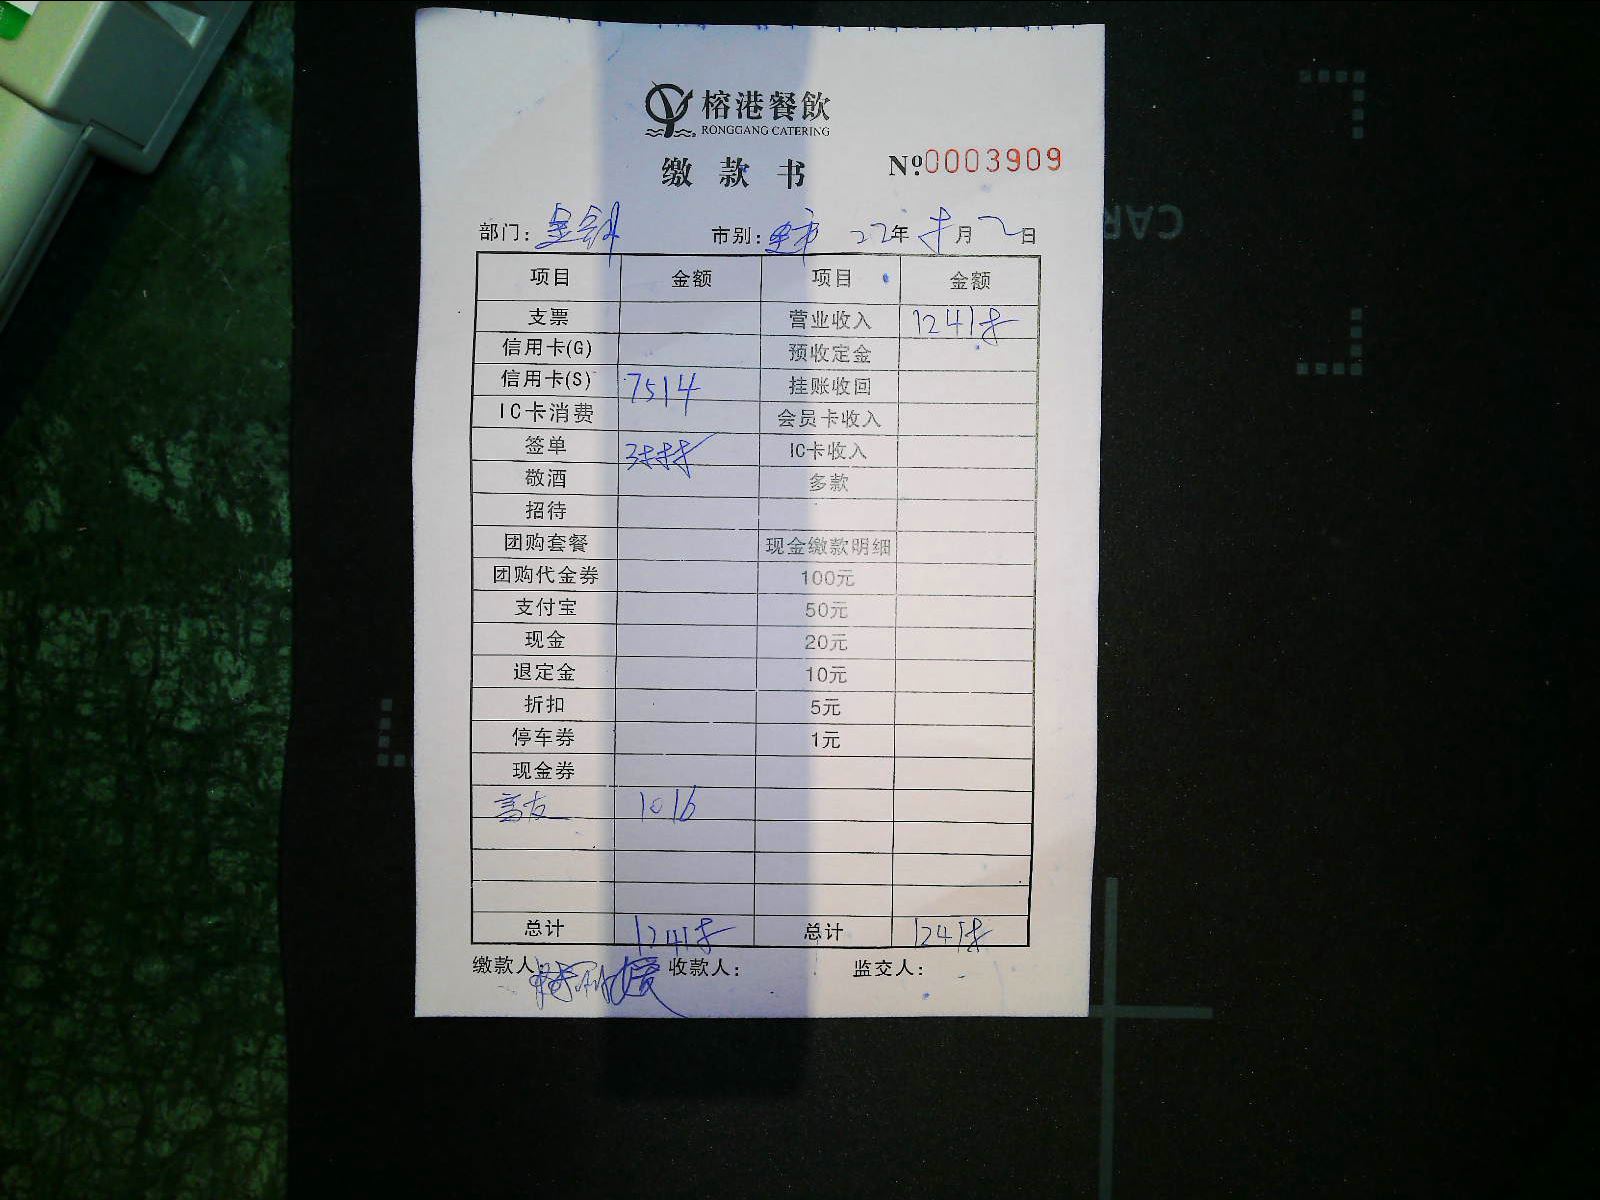 榕港餐飲
RONGGANG CATERING
缴款书 Nº0003909
部门: 市别: 22年8月2日
项目 金额 项目 金额
支票 营业收入 12418
信用卡(G) 预收定金
信用卡(S) 7514 挂账收回
IC卡消费 会员卡收入
签单 3888 IC卡收入
敬酒 多款
招待
团购套餐 现金缴款明细
团购代金券 100元
支付宝 50元
现金 20元
退定金 10元
折扣 5元
停车券 1元
现金券
1016
总计 12418 总计 12418
缴款人 收款人: 监交人: